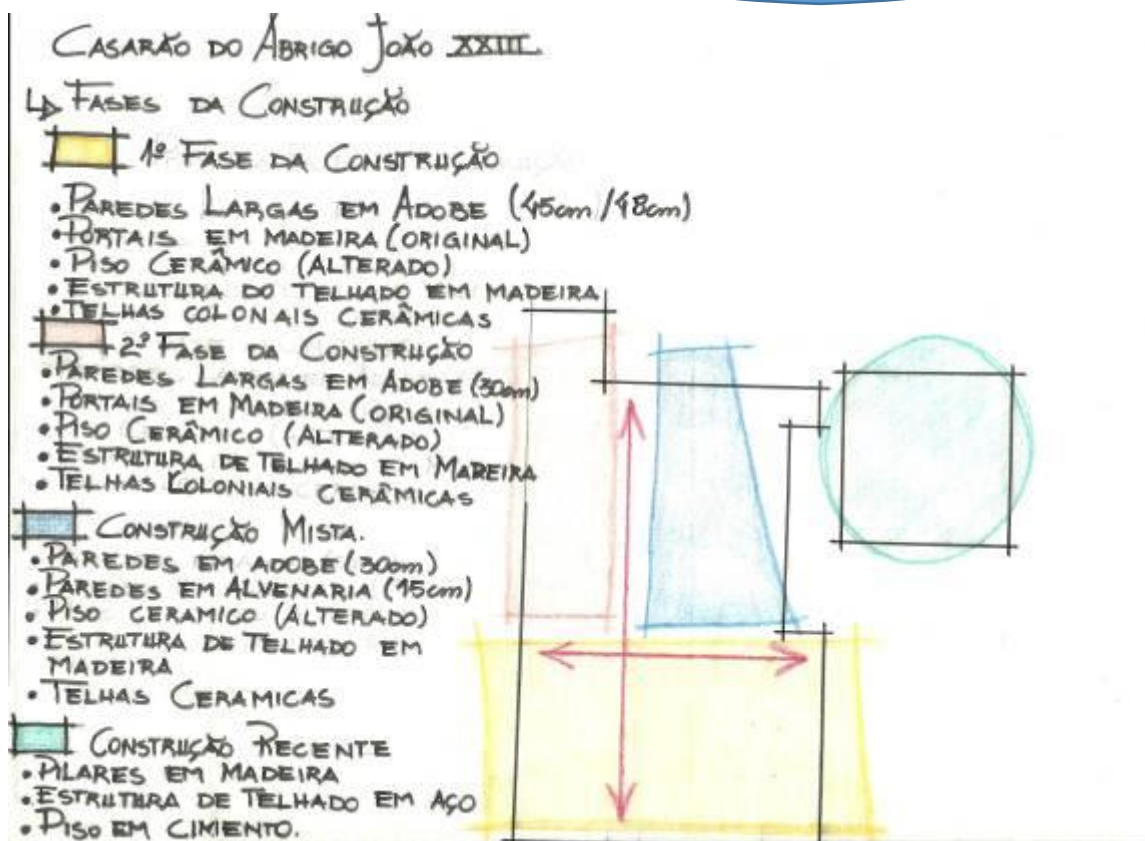 CASARÃO DO ABRIGO JOÃO XXIII.
FASES DA CONSTRUÇÃO
1ª FASE DA CONSTRUÇÃO
• PAREDES LARGAS EM ADOBE (45cm/48cm)
• PORTAIS EM MADEIRA (ORIGINAL)
• PISO CERÂMICO (ALTERADO)
• ESTRUTURA DO TELHADO EM MADEIRA
• TELHAS COLONAIS CERÂMICAS
2ª FASE DA CONSTRUÇÃO
• PAREDES LARGAS EM ADOBE (30cm)
• PORTAIS EM MADEIRA (ORIGINAL)
• PISO CERÂMICO (ALTERADO)
• ESTRUTURA DE TELHADO EM MAREIRA
• TELHAS COLONIAIS CERÂMICAS
CONSTRUÇÃO MISTA.
• PAREDES EM ADOBE (30cm)
• PAREDES EM ALVENARIA (15cm)
• PISO CERAMICO (ALTERADO)
• ESTRUTURA DE TELHADO EM
MADEIRA
• TELHAS CERAMICAS
CONSTRUÇÃO RECENTE
• PILARES EM MADEIRA
• ESTRUTURA DE TELHADO EM AÇO
• PISO EM CIMENTO.